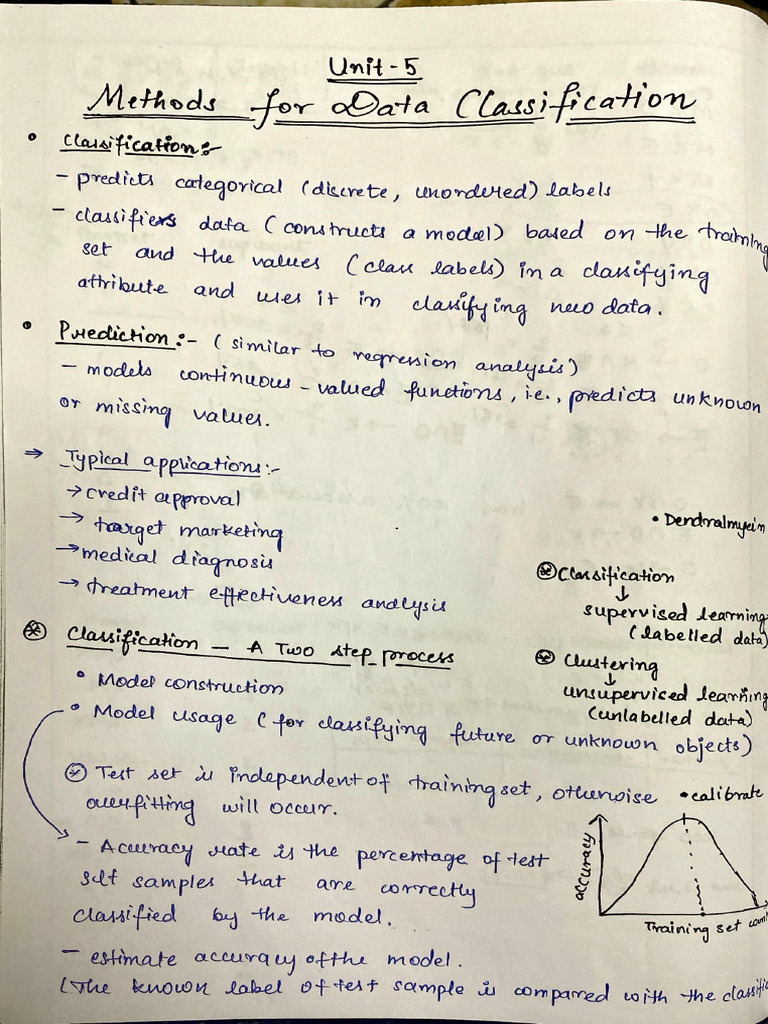 Unit-5
Methods for Data Classification
• Classification:-
- predicts categorical (discrete, unordered) labels
- classifiers data (constructs a model) based on the training
set and the values (class labels) in a classifying
attribute and uses it in classifying new data.
• Prediction:- (similar to regression analysis)
- models continuous-valued functions, i.e., predicts unknown
or missing values.
⇒ Typical applications:-
→ credit approval
→ target marketing
→ medical diagnosis
→ treatment effectiveness analysis
• Dendralmycin
⊛ Classification
↓
supervised learning
(labelled data)
⊛ Clustering
↓
unsupervised learning
(unlabelled data)
⊛ Classification - A Two step process
• Model construction
• Model usage (for classifying future or unknown objects)
⊛ Test set is independent of training set, otherwise
overfitting will occur.
• calibrate
- Accuracy rate is the percentage of test
set samples that are correctly
classified by the model.
accuracy
Training set
- estimate accuracy of the model.
(The known label of test sample is compared with the